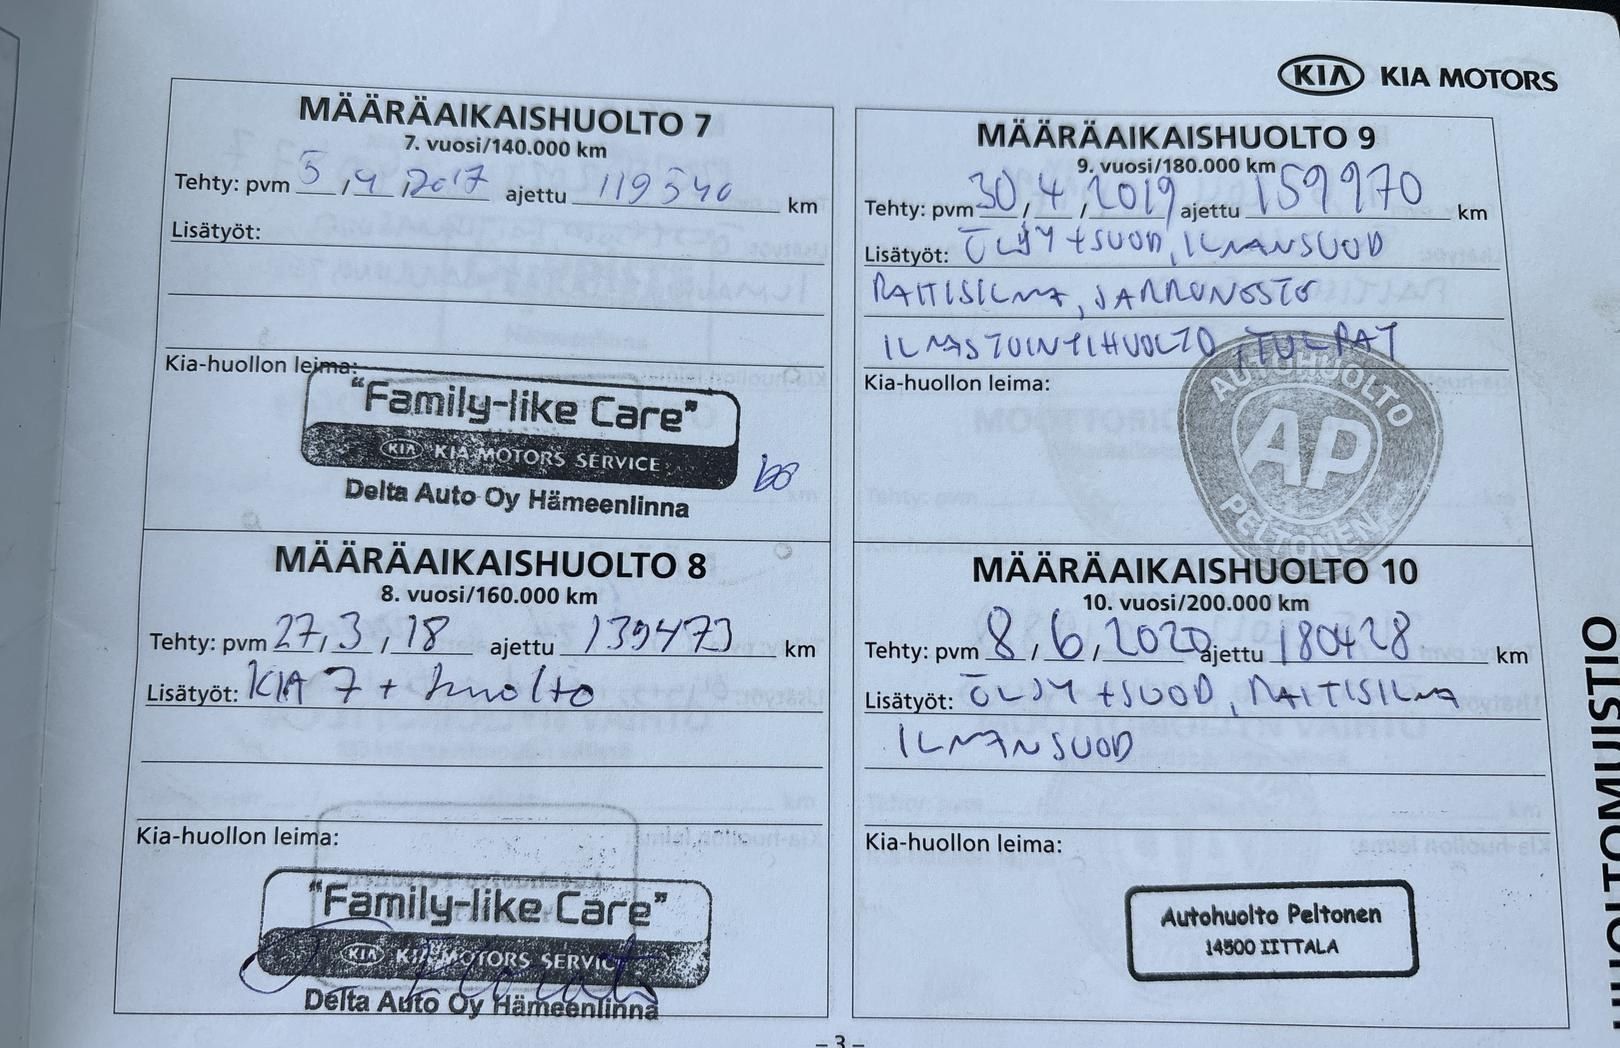 KIA KIA MOTORS
MÄÄRÄAIKAISHUOLTO 7
7. vuosi/140.000 km
Tehty: pvm 5 / 4 / 2017 ajettu 119540 km
Lisätyöt:
Kia-huollon leima:
"Family-like Care"
KIA KIA MOTORS SERVICE
Delta Auto Oy Hämeenlinna
MÄÄRÄAIKAISHUOLTO 8
8. vuosi/160.000 km
Tehty: pvm 27 / 3 / 18 ajettu 139473 km
Lisätyöt: KIA 7 + huolto
Kia-huollon leima:
"Family-like Care"
KIA KIA MOTORS SERVICE
Delta Auto Oy Hämeenlinna
MÄÄRÄAIKAISHUOLTO 9
9. vuosi/180.000 km
Tehty: pvm 30 / 4 / 2019 ajettu 159970 km
Lisätyöt: ÖLJY + SUOD, ILMANSUOD
RAITISILMA, JARRUNESTE
ILMASTOINTIHUOLTO, TULPAT
Kia-huollon leima:
AUTOHUOLTO
AP
PELTONEN
MÄÄRÄAIKAISHUOLTO 10
10. vuosi/200.000 km
Tehty: pvm 8 / 6 / 2020 ajettu 180428 km
Lisätyöt: ÖLJY + SUOD, RAITISILMA
ILMANSUOD
Kia-huollon leima:
Autohuolto Peltonen
14500 IITTALA
– 3 –
HUOLTOMUISTIO